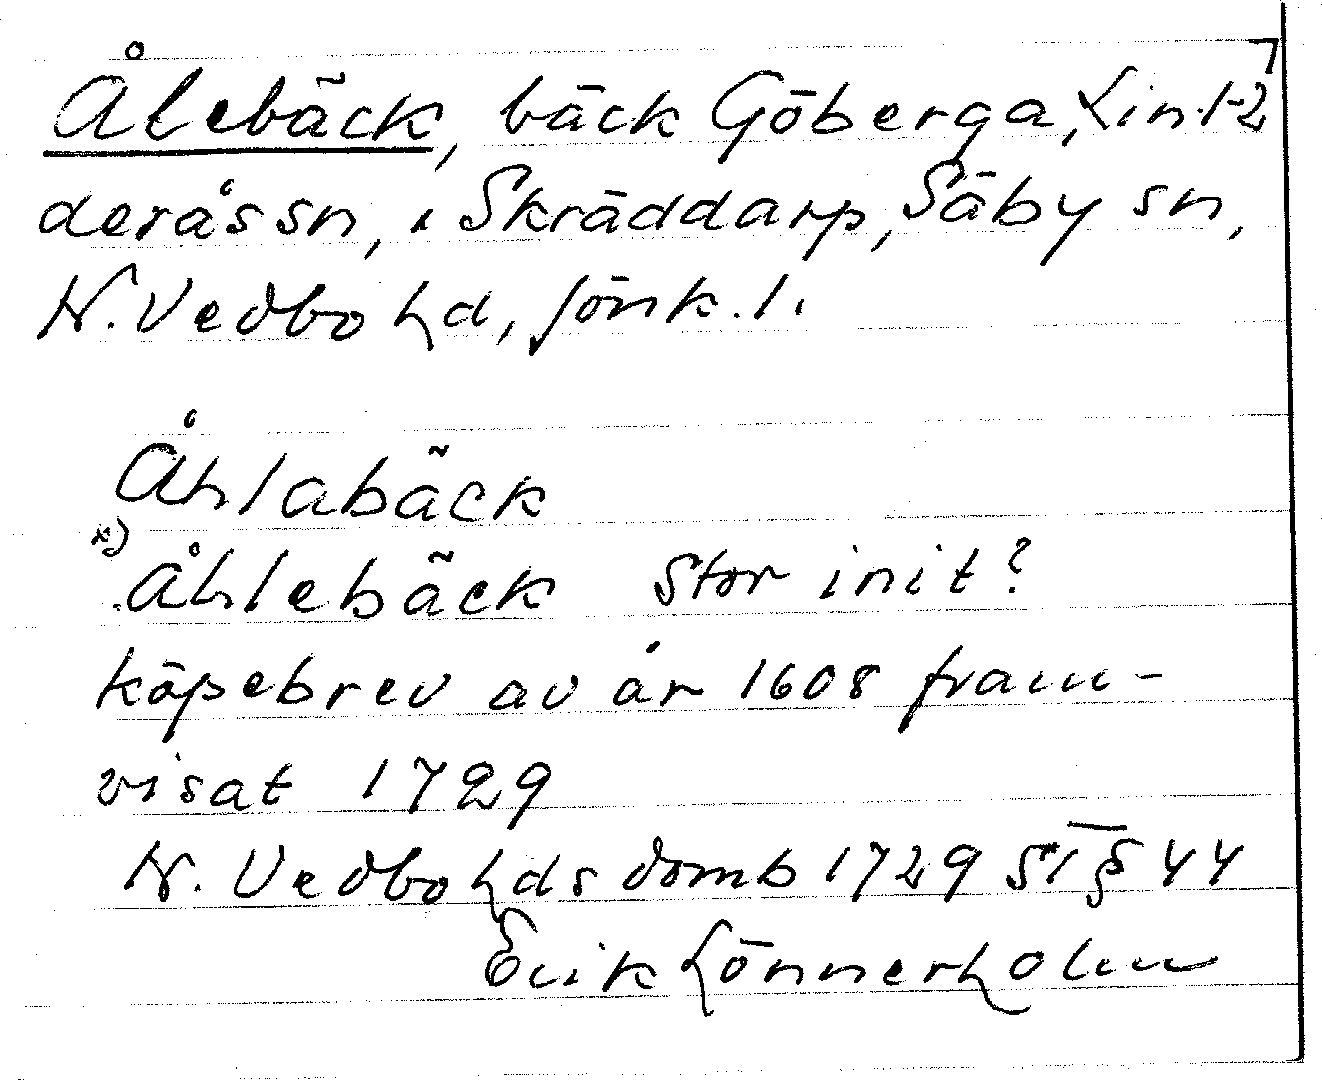 Ålebäck, bäck Göberga, Lin-
deråssn, i Skräddarp, Säby sn,
N. Vedbo hd, Jönk. l.
Åhlabäck
x)
Åhlebäck Stor init?
köpebrev av år 1608 fram-
visat 1729
N. Vedbo hds domb 1729 § 44
Erik Lönnerholm